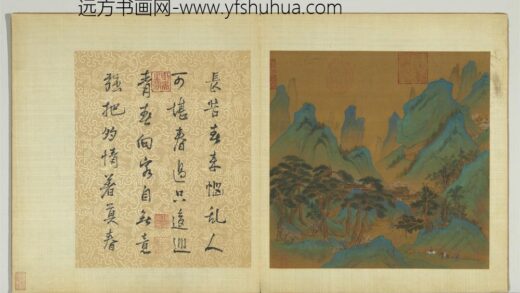 远方书画网-www.yfshuhua.com
長苦春來惱亂人
可堪春過只逡巡
青春向客自無意
強把多情着莫春